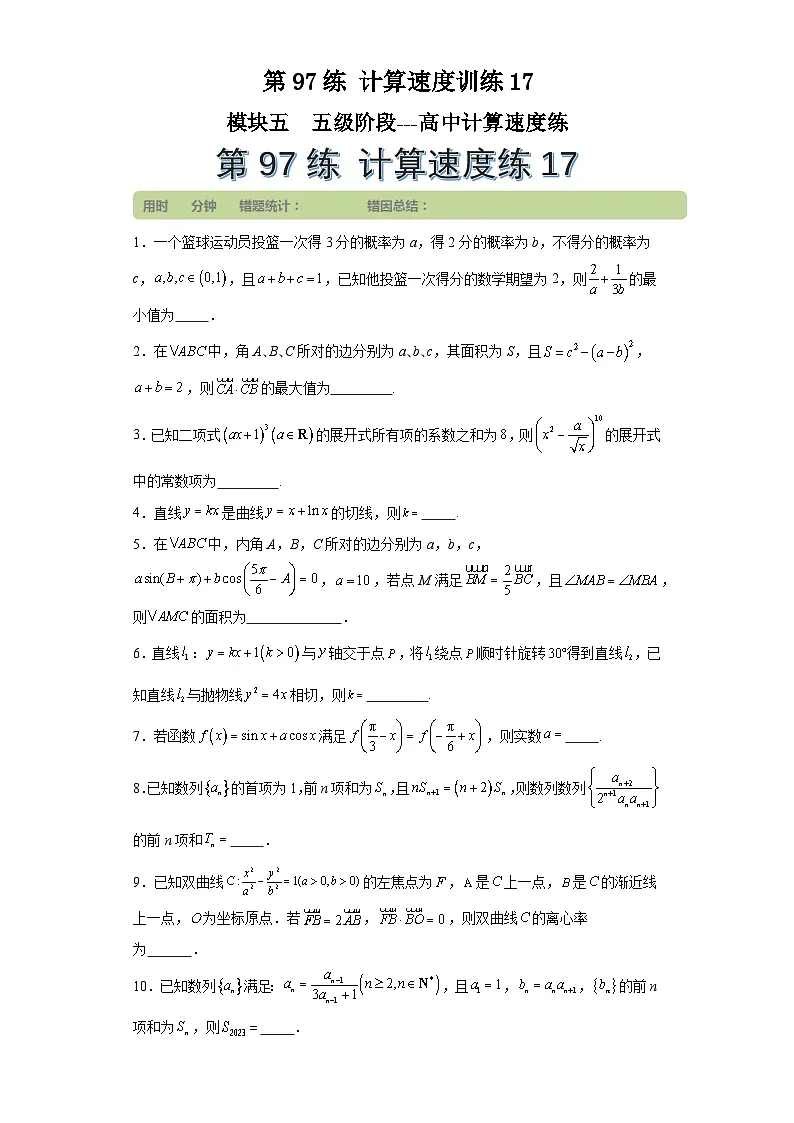 第 97 练 计算速度训练 17
模块五 五级阶段---高中计算速度练
第 97 练 计算速度练 17
用时 分钟 错题统计： 错因总结：
1．一个篮球运动员投篮一次得 3 分的概率为 a，得 2 分的概率为 b，不得分的概率为
c，a,b,c∈(0,1)，且 a+b+c=1，已知他投篮一次得分的数学期望为 2，则 2/a + 1/(3b) 的最
小值为_____．
2．在 VABC 中，角 A、B、C 所对的边分别为 a、b、c，其面积为 S，且 S=c²−(a−b)²，
a+b=2，则 CA·CB 的最大值为_________．
3．已知二项式 (ax+1)³(a∈R) 的展开式所有项的系数之和为 8，则 (x²−a/√x)¹⁰ 的展开式
中的常数项为_________．
4．直线 y=kx 是曲线 y=x+ln x 的切线，则 k=_____.
5．在 VABC 中，内角 A，B，C 所对的边分别为 a，b，c，
a sin(B+π)+b cos(5π/6−A)=0，a=10，若点 M 满足 BM=2/5 BC，且∠MAB=∠MBA，
则 VAMC 的面积为______________．
6．直线 l₁：y=kx+1(k>0) 与 y 轴交于点 P，将 l₁ 绕点 P 顺时针旋转 30°得到直线 l₂，已
知直线 l₂ 与抛物线 y²=4x 相切，则 k=_________.
7．若函数 f(x)=sin x+a cos x 满足 f(π/3−x)=f(−π/6+x)，则实数 a=_____.
8．已知数列{aₙ}的首项为 1，前 n 项和为 Sₙ，且 nSₙ₊₁=(n+2)Sₙ，则数列数列{aₙ₊₂/(2ⁿ⁺¹aₙaₙ₊₁)}
的前 n 项和 Tₙ=_____．
9．已知双曲线 C: x²/a²−y²/b²=1(a>0,b>0) 的左焦点为 F，A 是 C 上一点，B 是 C 的渐近线
上一点，O 为坐标原点．若 FB=2AB，FB·BO=0，则双曲线 C 的离心率
为______．
10．已知数列{aₙ}满足：aₙ=aₙ₋₁/(3aₙ₋₁+1)(n≥2,n∈N*)，且 a₁=1，bₙ=aₙaₙ₊₁，{bₙ}的前 n
项和为 Sₙ，则 S₂₀₂₃=_____．